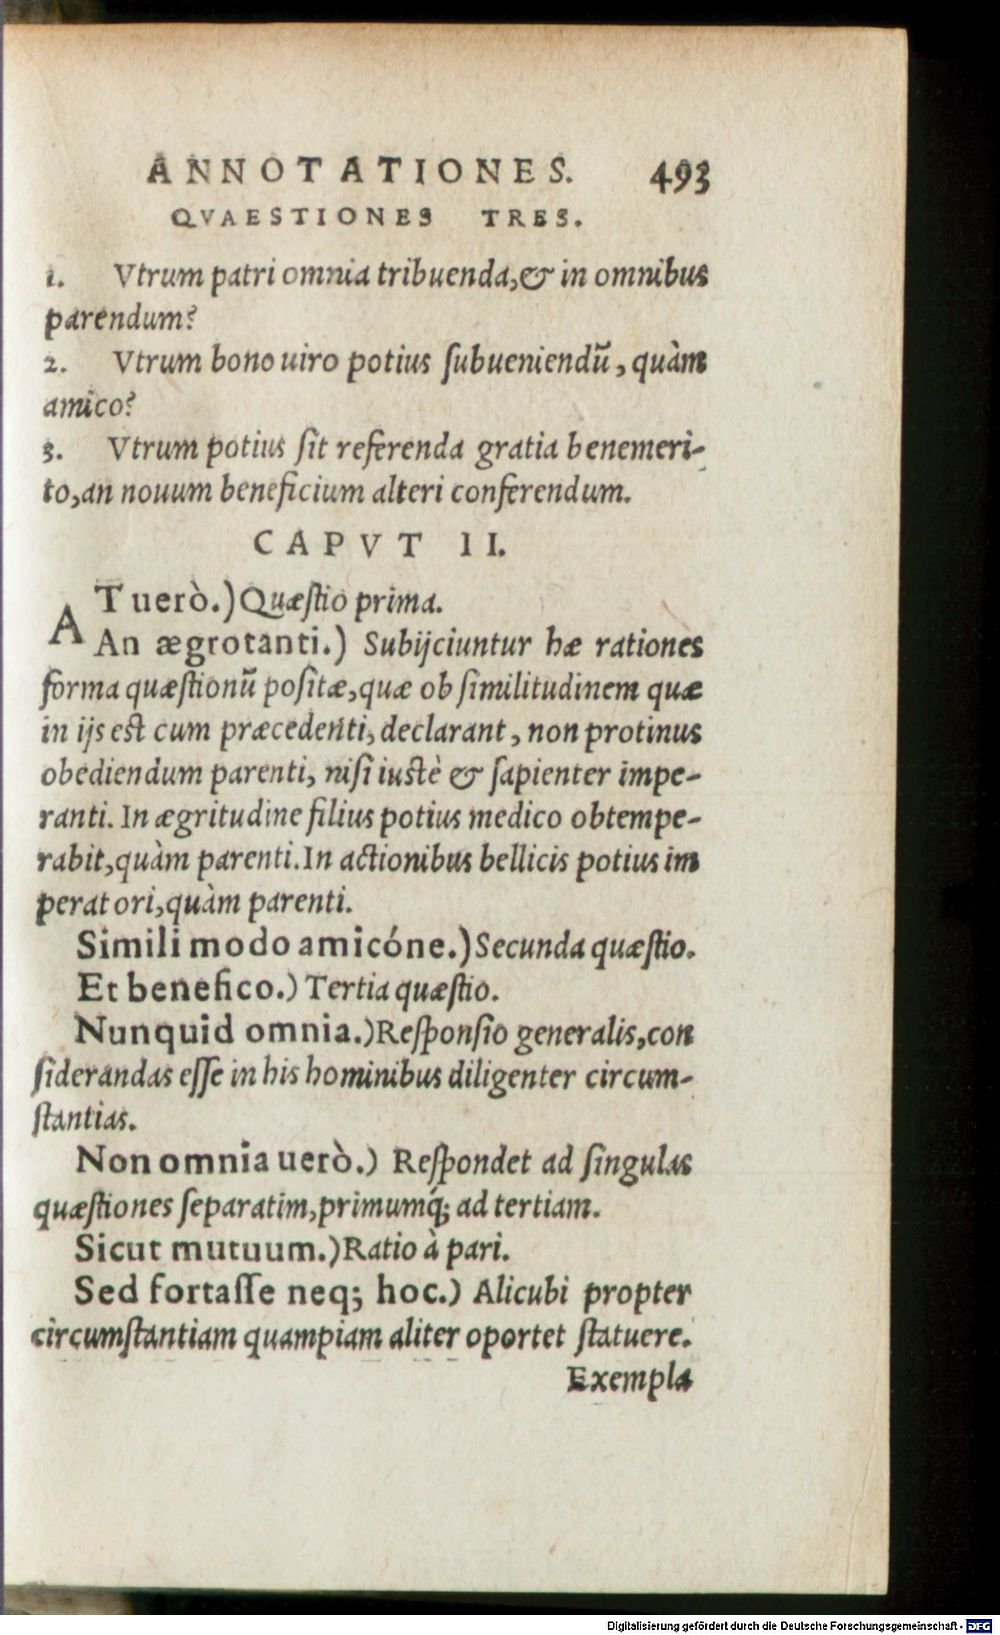 ANNOTATIONES. 493
QVAESTIONES TRES.
1. Vtrum patri omnia tribuenda,& in omnibus
parendum?
2. Vtrum bono uiro potius ſubueniendũ, quàm
amico?
3. Vtrum potius ſit referenda gratia benemeri-
to,an nouum beneficium alteri conferendum.
CAPVT II.
AT uerò.) Quæſtio prima.
An ægrotanti.) Subijciuntur hæ rationes
forma quæſtionũ poſitæ,quæ ob ſimilitudinem quæ
in ijs est cum præcedenti, declarant, non protinus
obediendum parenti, niſi iustè & ſapienter impe-
ranti. In ægritudine filius potius medico obtempe-
rabit,quàm parenti. In actionibus bellicis potius im
peratori,quàm parenti.
Simili modo amicóne.) Secunda quæſtio.
Et benefico.) Tertia quæſtio.
Nunquid omnia.) Reſponſio generalis,con
ſiderandas eſſe in his hominibus diligenter circum-
ſtantias.
Non omnia uerò.) Reſpondet ad ſingulas
quæſtiones ſeparatim,primumq́; ad tertiam.
Sicut mutuum.) Ratio à pari.
Sed fortaſſe neq; hoc.) Alicubi propter
circumſtantiam quampiam aliter oportet ſtatuere.
Exempla
Digitalisierung gefördert durch die Deutsche Forschungsgemeinschaft - DFG